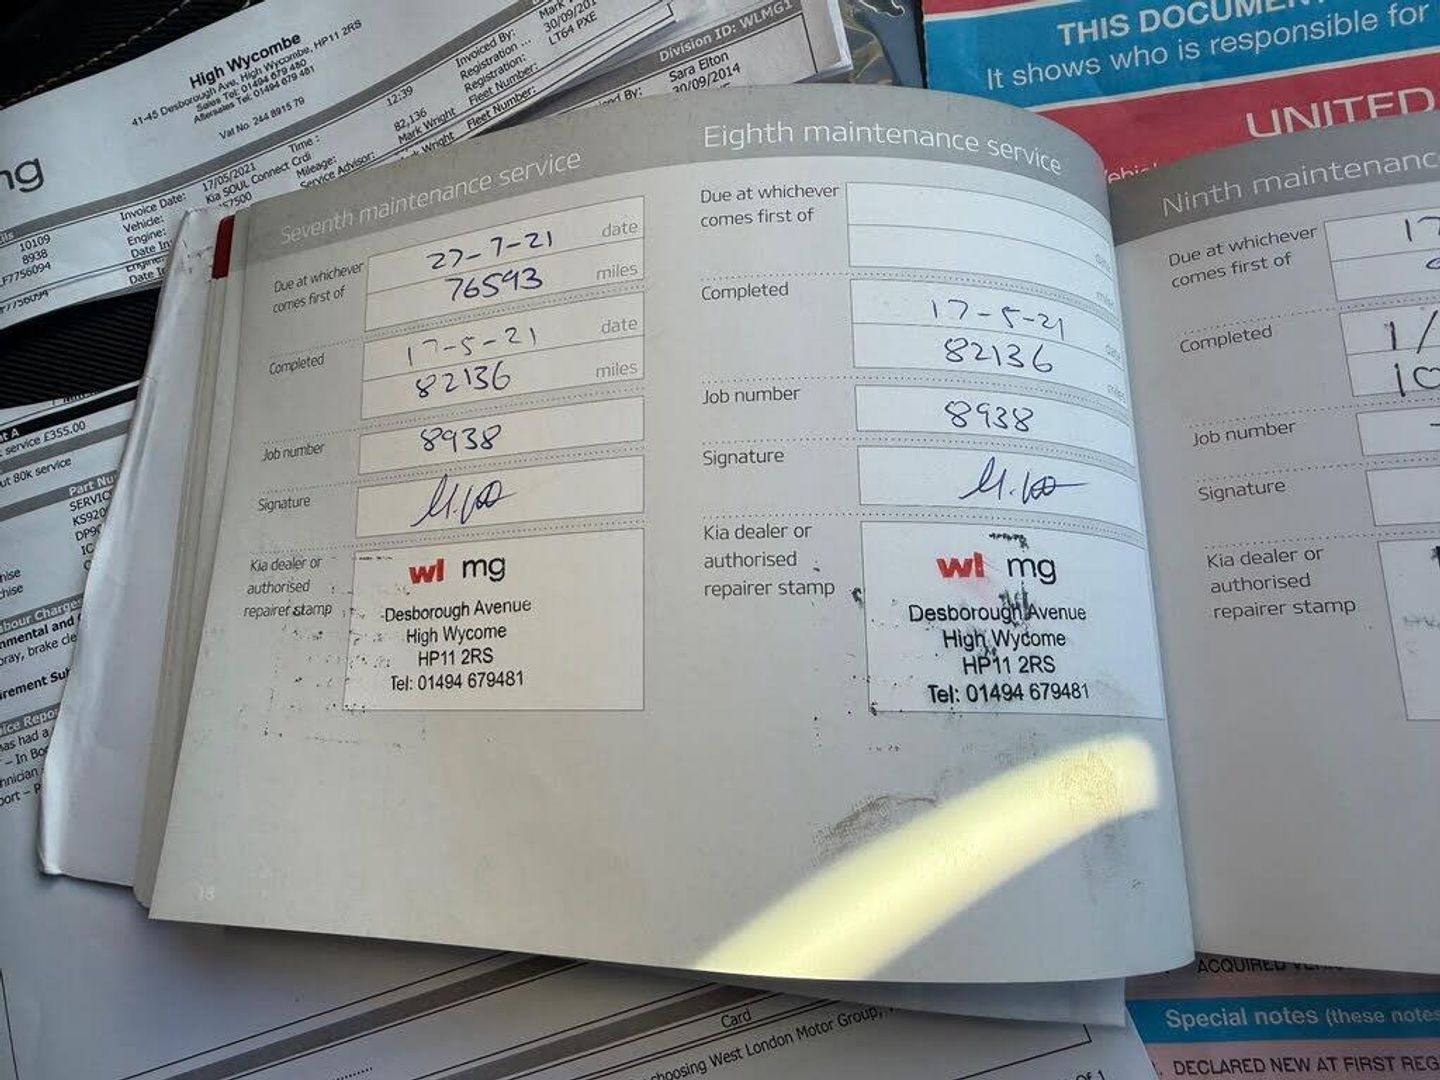 High Wycombe
41-45 Desborough Ave, High Wycombe, HP11 2RS
Sales Tel: 01494 679 480
Aftersales Tel: 01494 679 481
Vat No. 244 8915 79
ng
10109
8938
Invoice Date: 17/05/2021
Time: 12:39
Vehicle: Kia SOUL Connect Crdi
Engine:
Mileage: 82,136
Service Advisor: Mark Wright
Invoiced By:
Registration ... 30/09/201
Registration: LT64 PXE
Fleet Number:
Fleet Number:
Division ID: WLMG1
Sara Elton
30/09/2014
THIS DOCUMEN
It shows who is responsible for
UNITED
Seventh maintenance service
Due at whichever
comes first of
27-7-21 date
76593 miles
Completed
17-5-21 date
82136 miles
Job number
8938
Signature
Kia dealer or
authorised
repairer stamp
wl mg
Desborough Avenue
High Wycome
HP11 2RS
Tel: 01494 679481
18
Eighth maintenance service
Due at whichever
comes first of
date
miles
Completed
17-5-21 date
82136 miles
Job number
8938
Signature
Kia dealer or
authorised
repairer stamp
wl mg
Desborough Avenue
High Wycome
HP11 2RS
Tel: 01494 679481
Ninth maintenanc
Due at whichever
comes first of
17
Completed
1/
10
Job number
Signature
Kia dealer or
authorised
repairer stamp
service £355.00
ut 80k service
Part Nu
SERVIC
KS920
bour Charges
nmental and
ray, brake cle
irement Su
ice Repo
as had a
- In Bo
hnician
ort -
Card
hoosing West London Motor Group,
Of 1
ACQUIRED VE
Special notes (these notes
DECLARED NEW AT FIRST REG